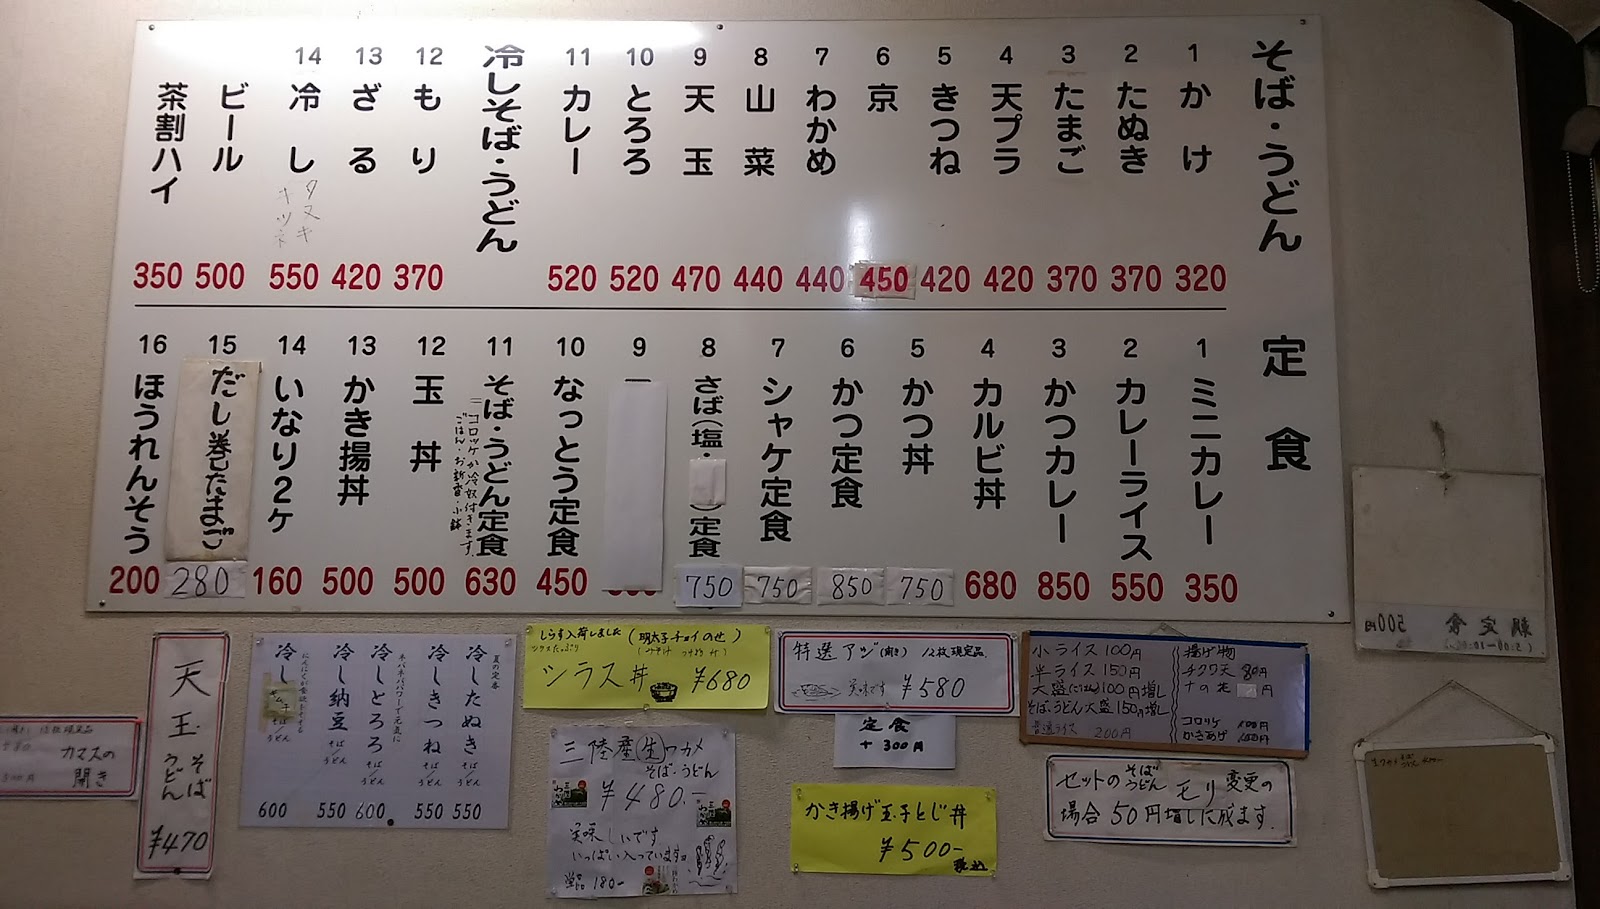 そば・うどん
1 かけ 320
2 たぬき 370
3 たまご 370
4 天プラ 420
5 きつね 420
6 京 450
7 わかめ 440
8 山菜 440
9 天玉 470
10 とろろ 520
11 カレー 520
冷しそば・うどん
12 もり 370
13 ざる 420
14 冷し タヌキ キツネ 550
ビール 500
茶割ハイ 350
定食
1 ミニカレー 350
2 カレーライス 550
3 かつカレー 850
4 カルビ丼 680
5 かつ丼 750
6 かつ定食 850
7 シャケ定食 750
8 さば(塩・)定食 750
9
10 なっとう定食 450
11 そば・うどん定食 630
コロッケか冷奴付きます。
ごはん・お新香・小鉢
12 玉丼 500
13 かき揚丼 500
14 いなり2ケ 160
15 だし巻たまご 280
16 ほうれんそう 200
朝定食 500円
小ライス 100円
半ライス 150円
大盛(ごはん)100円増し
そば・うどん大盛 150円増し
普通ライス 200円
揚げ物
チクワ天 80円
ナの花 円
コロッケ 100円
かきあげ 100円
セットのそばうどんモリ変更の
場合 50円増しに成ます.
特選アジ(開き) 12枚限定品.
美味です ¥580
定食
+300円
かき揚げ玉子とじ丼
¥500-
税込
しらす入荷しました (明太子チョイのせ)
シラス丼 ¥680
三陸産(生)ワカメ
そば・うどん
¥480.-
美味しいです
いっぱい入っています。
単品 180-
夏の定番
冷したぬき そば/うどん 550
冷しきつね そば/うどん 550
ネバネバパワーで元気に
冷しとろろ そば/うどん 600
冷し納豆 そば/うどん 550
冷しキムチ そば/うどん 600
天玉 そば うどん ¥470
カマスの
開き